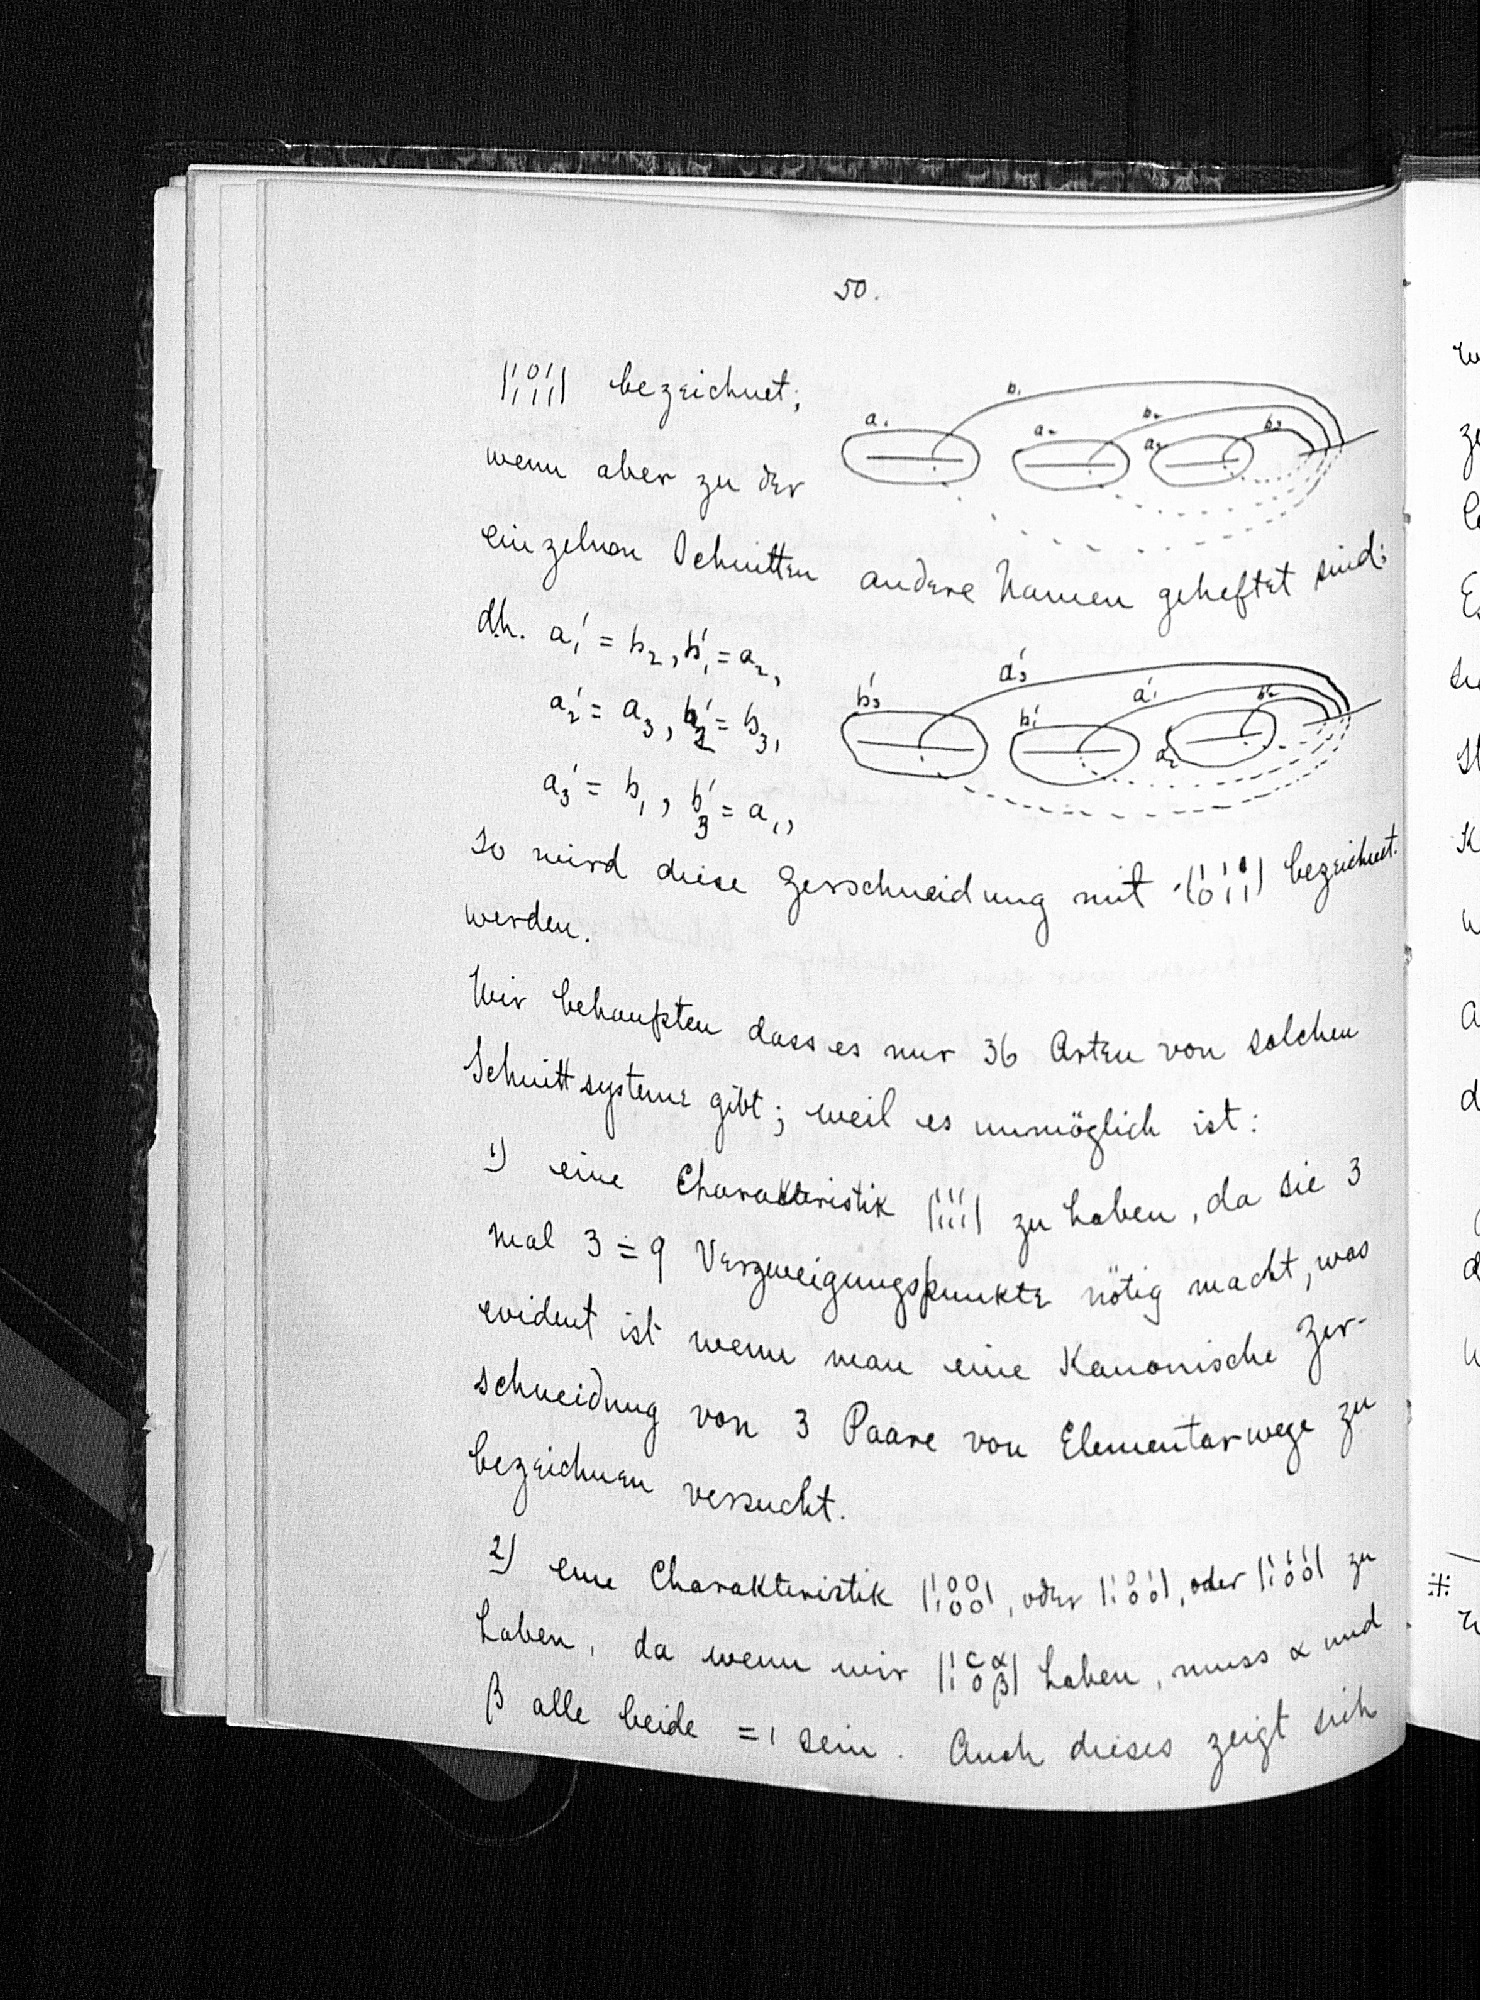 50.
|1 0 1
1 1 1| bezeichnet;
b₁
a₁
b₂
a₂
b₃
a₃
wenn aber zu der
einzelnen Schnitten andere Namen geheftet sind;
d.h. a₁' = b₂, b₁' = a₂,
a₂' = a₃, b₂' = b₃,
a₃' = b₁, b₃' = a₁,
a₃'
b₃'
a₁'
b₁'
b₂'
a₂'
so wird diese Zerschneidung mit |1 1 1
0 1 1| bezeichnet
werden.
Wir behaupten dass es nur 36 Arten von solchen
Schnittsysteme gibt; weil es unmöglich ist:
1) eine Charakteristik |1 1 1
1 1 1| zu haben, da sie 3
mal 3 = 9 Verzweigungspunkte nötig macht, was
evident ist wenn man eine Kanonische Zer-
schneidung von 3 Paare von Elementarwege zu
bezeichnen versucht.
2) eine Charakteristik |1 0 0
1 0 0|, oder |1 0 1
1 0 0|, oder |1 1 1
1 0 0| zu
haben, da wenn wir |1 c α
1 0 β| haben, muss α und
β alle beide = 1 sein. Auch dieses zeigt sich